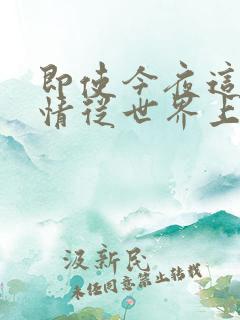 即使今夜這
情從世界上
汲新民
未经同意禁止转载